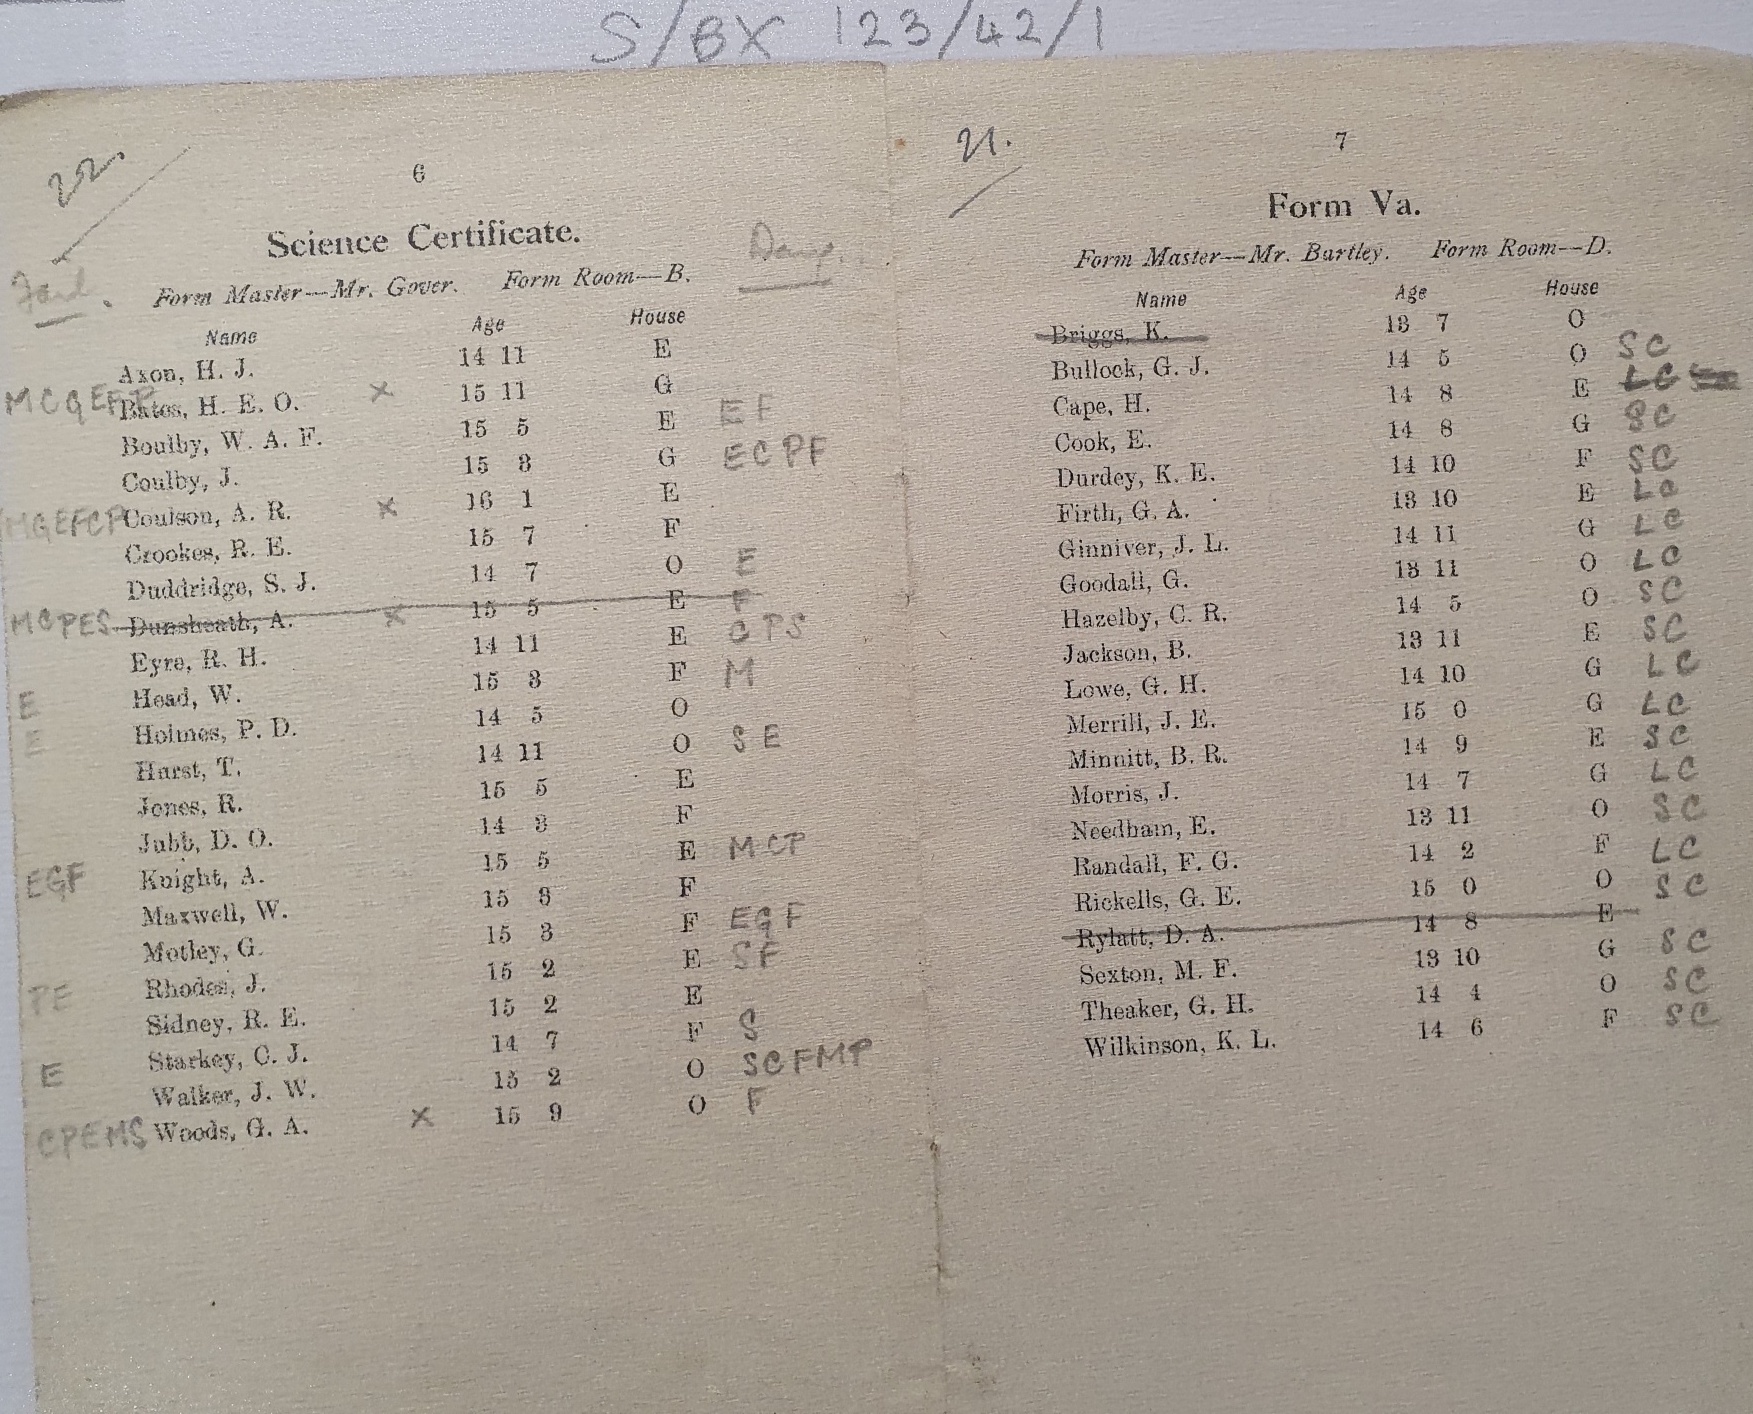 S/BX 123/42/1
22.
6
Science Certificate.
Form Master—Mr. Gover. Form Room—B.
Name Age House
Axon, H. J. 14 11 E
MCGEFP Bates, H. E. O. x 15 11 G
Boulby, W. A. F. 15 5 E EF
Coulby, J. 15 3 G ECPF
MGEFCP Coulson, A. R. x 16 1 E
Crookes, R. E. 15 7 F
Duddridge, S. J. 14 7 O E
MCPES Dunsheath, A. x 15 5 E F
Eyre, R. H. 14 11 E CPS
E Head, W. 15 3 F M
E Holmes, P. D. 14 5 O
Hurst, T. 14 11 O SE
Jones, R. 15 5 E
Jubb, D. O. 14 3 F
EGF Knight, A. 15 5 E MCP
Maxwell, W. 15 3 F
Motley, G. 15 3 F EGF
PE Rhodes, J. 15 2 E SF
Sidney, R. E. 15 2 E
E Starkey, C. J. 14 7 F S
Walker, J. W. 15 2 O SCFMP
CPEMS Woods, G. A. x 15 9 O F
21.
7
Form Va.
Form Master—Mr. Bartley. Form Room—D.
Name Age House
Briggs, K. 13 7 O
Bullock, G. J. 14 5 O SC
Cape, H. 14 8 E LC
Cook, E. 14 8 G SC
Durdey, K. E. 14 10 F SC
Firth, G. A. 13 10 E LC
Ginniver, J. L. 14 11 G LC
Goodall, G. 13 11 O LC
Hazelby, C. R. 14 5 O SC
Jackson, B. 13 11 E SC
Lowe, G. H. 14 10 G LC
Merrill, J. E. 15 0 G LC
Minnitt, B. R. 14 9 E SC
Morris, J. 14 7 G LC
Needham, E. 13 11 O SC
Randall, F. G. 14 2 F LC
Rickells, G. E. 15 0 O SC
Rylatt, D. A. 14 8 E
Sexton, M. F. 13 10 G SC
Theaker, G. H. 14 4 O SC
Wilkinson, K. L. 14 6 F SC